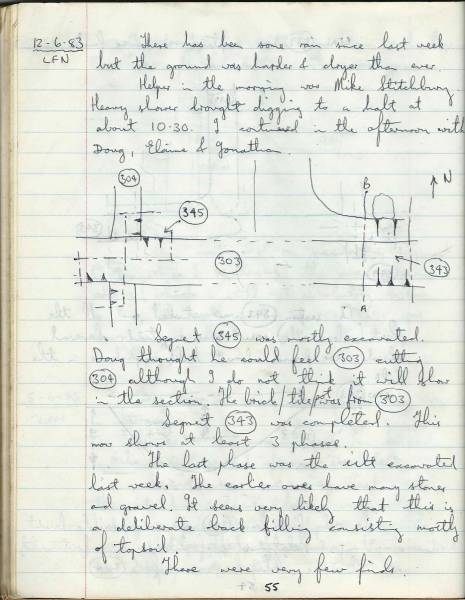 12-6-83 There has been some rain since last week
LFN but the ground was harder & dryer than ever.
Helper in the morning was Mike Stitchbury
Heavy shower brought digging to a halt at
about 10-30. I continued in the afternoon with
Doug, Elaine & Jonathan.
304
345
B
N
303
343
A
Segment 345 was mostly excavated.
Doug thought he could feel 303 cutting
304 although I do not think it will show
in the section. The brick/tile/pot was from 303
Segment 343 was completed. This
now shows at least 3 phases.
The last phase was the silt excavated
last week. The earlier ones have many stones
and gravel. It seems very likely that this is
a deliberate back filling consisting mostly
of topsoil.
There were very few finds.
55